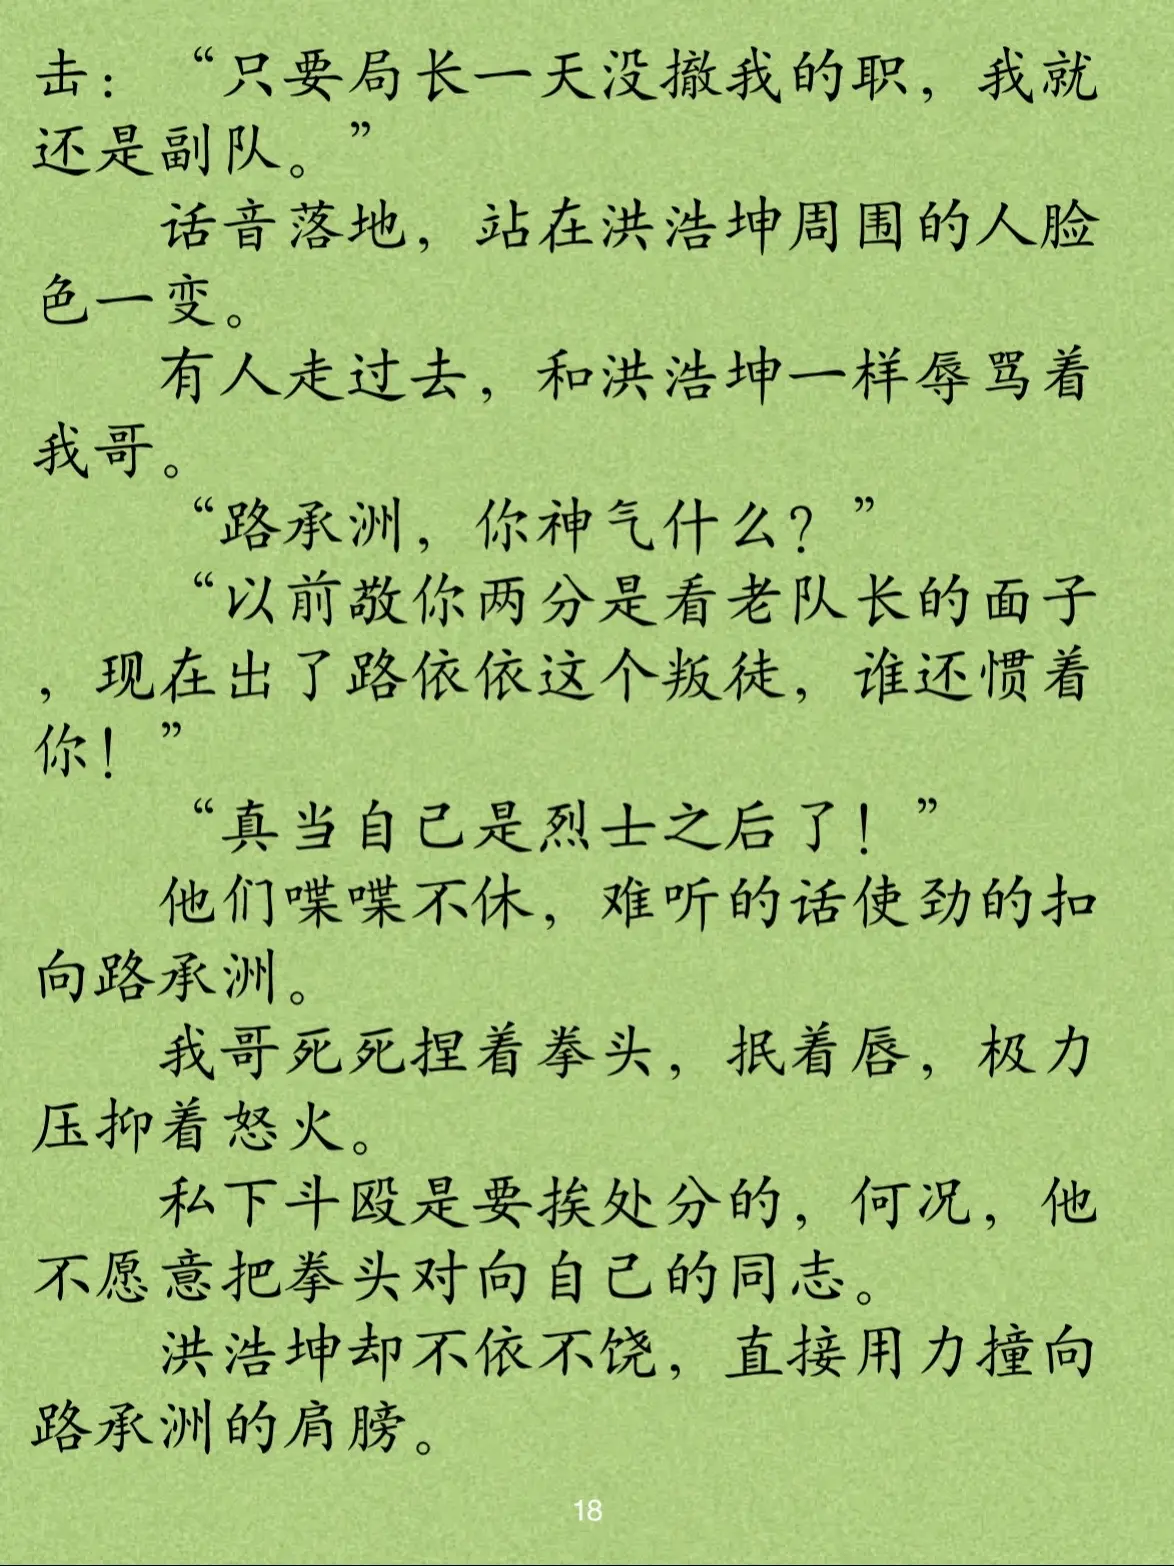 击：“只要局长一天没撤我的职，我就
还是副队。”
话音落地，站在洪浩坤周围的人脸
色一变。
有人走过去，和洪浩坤一样辱骂着
我哥。
“路承洲，你神气什么？”
“以前敬你两分是看老队长的面子
，现在出了路依依这个叛徒，谁还惯着
你！”
“真当自己是烈士之后了！”
他们喋喋不休，难听的话使劲的扣
向路承洲。
我哥死死捏着拳头，抿着唇，极力
压抑着怒火。
私下斗殴是要挨处分的，何况，他
不愿意把拳头对向自己的同志。
洪浩坤却不依不饶，直接用力撞向
路承洲的肩膀。
18